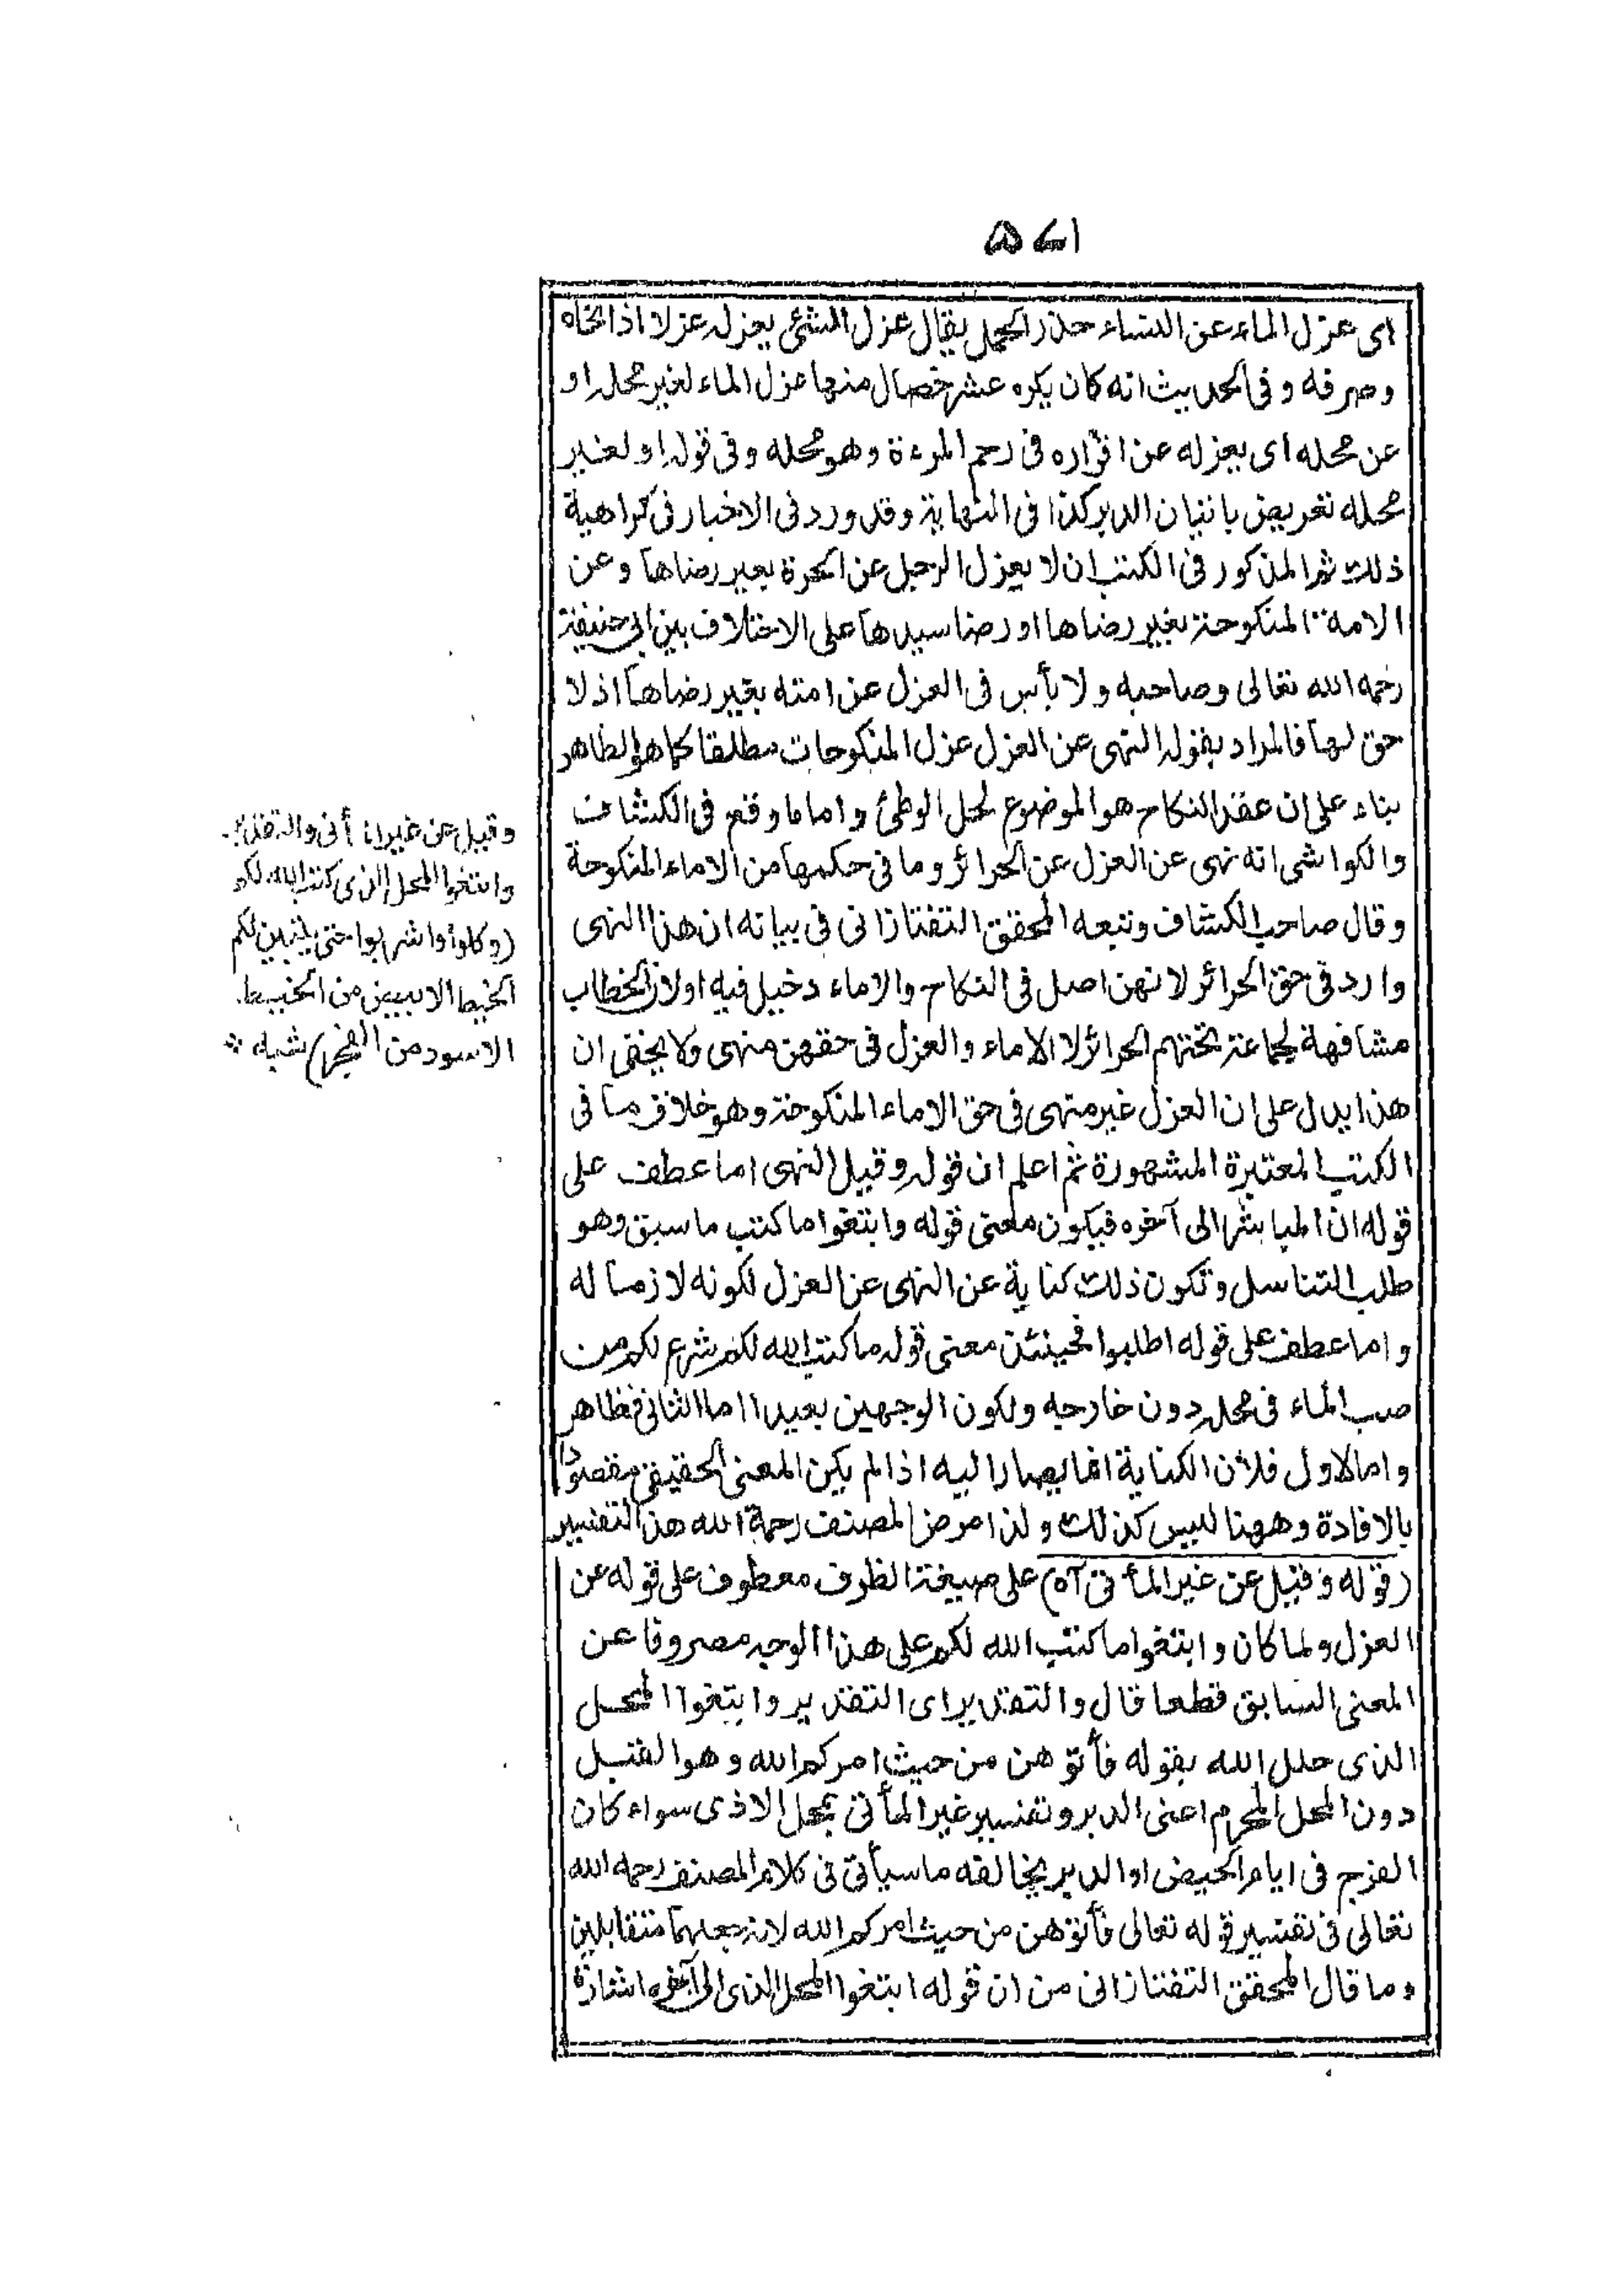 ٥٧١
اى عزل الماء عن النساء حذر الحمل يقال عزل الشئ يعزله عزلا اذا نحاه
وصرفه وفى الحديث انه كان يكره عشر خصال منها عزل الماء لغير محله او
عن محله اى يعزله عن اقراره فى رحم المرءة وهو محله وفى قوله او لغير
محله تعريض باتيان الدبر كذا فى النهاية وقد ورد فى الاخبار فى كراهية
ذلك ثم المذكور فى الكتب ان لا يعزل الرجل عن الحرة بغير رضاها وعن
الامة المنكوحة بغير رضاها او رضا سيدها على الاختلاف بين ابى حنيفة
رحمه الله تعالى وصاحبه ولا بأس فى العزل عن امته بغير رضاها اذ لا
حق لها فالمراد بقوله النهى عن العزل عزل المنكوحات مطلقا كما هو الظاهر
بناء على ان عقد النكاح هو الموضوع لحل الوطئ واما ما وقع فى الكشاف
والكواشى انه نهى عن العزل عن الحرائر وما فى حكمها من الاماء المنكوحة
وقال صاحب الكشاف وتبعه المحقق التفتازانى فى بيانه ان هذا النهى
وارد فى حق الحرائر لانهن اصل فى النكاح والاماء دخيل فيه اولان الخطاب
مشافهة لجماعة تحتهم الحرائر لا الاماء والعزل فى حقهن منهى ولا يخفى ان
هذا يدل على ان العزل غير منهى فى حق الاماء المنكوحة وهو خلاف ما فى
الكتب المعتبرة المشهورة ثم اعلم ان قوله وقيل النهى اما عطف على
قوله ان المباشر الى آخره فيكون معنى قوله وابتغوا ما كتب ما سبق وهو
طلب التناسل وتكون ذلك كناية عن النهى عن العزل لكونه لازما له
واما عطف على قوله اطلبوا فحينئذ معنى قوله ما كتب الله لكم شرع لكم من
صب الماء فى محله دون خارجه ولكون الوجهين بعيدا اما الثانى فظاهر
واما الاول فلان الكناية انما يصار اليه اذا لم يكن المعنى الحقيقى مقصودا
بالافادة وههنا ليس كذلك ولذا مرض المصنف رحمة الله هذا التفسير
(قوله وقيل عن غير المأتى آه) على صيغة الظرف معطوف على قوله عن
العزل ولما كان وابتغوا ما كتب الله لكم على هذا الوجه مصروفا عن
المعنى السابق قطعا قال والتقدير اى التقدير وابتغوا المحل
الذى حلل الله بقوله فأتوهن من حيث امركم الله وهو القبل
دون المحل المحرم اعنى الدبر وتفسير غير المأتى بمحل الاذى سواء كان
الفرج فى ايام الحيض او الدبر يخالفه ما سيأتى فى كلام المصنف رحمه الله
تعالى فى تفسير قوله تعالى فأتوهن من حيث امركم الله لانه جعلهما متقابلين
وما قال المحقق التفتازانى من ان قوله ابتغوا المحل الذى الى آخره اشارة
وقيل عن غير المأتى والتقدير
وابتغوا المحل الذى كتب الله لكم
(وكلوا واشربوا حتى يتبين لكم
الخيط الابيض من الخيط
الاسود من الفجر) شبه *